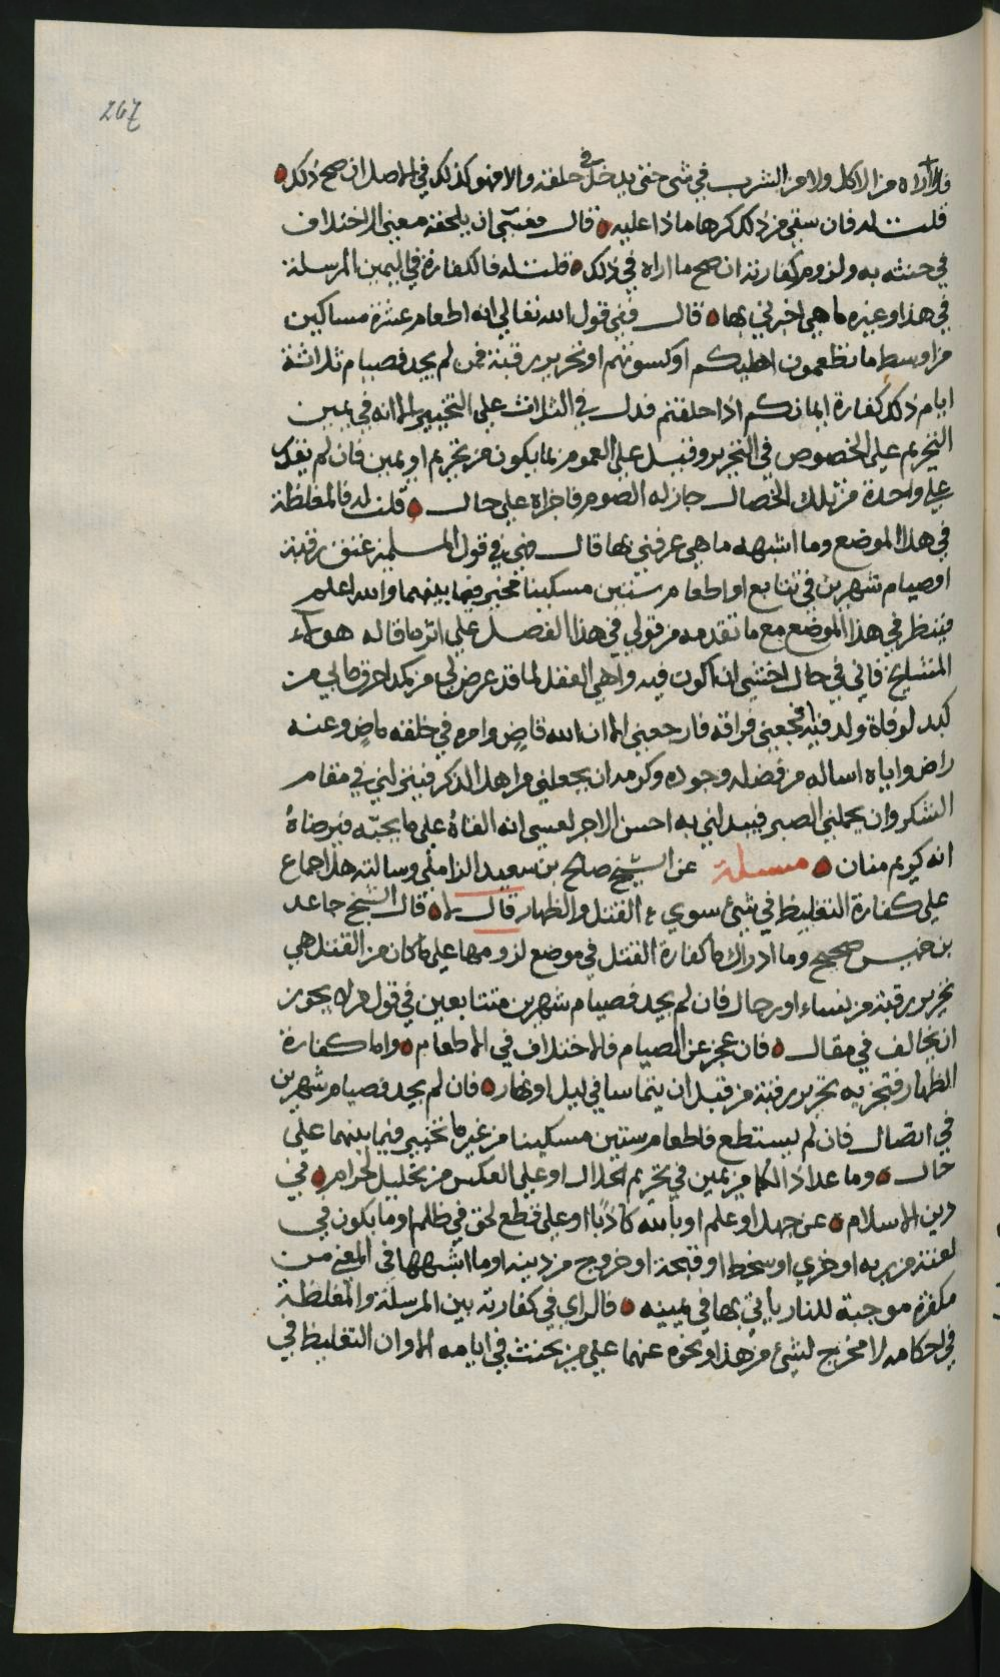 267
فلا أراه من الاكل ولا من الشرب في شي حتى يدخل في حلقه والا فهو كذلك في الاصل ان صح ذلك
قلت له فان سقي من ذلك كرها ماذا عليه قال فعسى ان يلحقه معنى الاختلاف
في حنثه به ولزوم كفارته ان صح ما اراه في ذلك قلت له فالكفارة في اليمين المرسلة
في هذا وغيره ما هي اخبرني بها قال ففي قول الله تعالى انه اطعام عشرة مساكين
من اوسط ما تطعمون اهليكم او كسوتهم او تحرير رقبة فمن لم يجد فصيام ثلاثة
ايام ذلك كفارة ايمانكم اذا حلفتم فدل في الثلاث على التخيير الا انه في يمين
التحريم على الخصوص في التحرير وقيل على العموم بما يكون من تحريم او يمين فان لم يقدر
على واحدة من تلك الخصال جاز له الصوم فاجزاه على حال قلت له فالمغلظة
في هذا الموضع وما اشبهه ما هي عرفني بها قال هي في قول المسلمين عتق رقبة
او صيام شهرين في تتابع او اطعام ستين مسكينا مخير فيما بينهما والله اعلم
فينظر في هذا الموضع مع ما تقدمه من قولي في هذا الفصل على اثر ما قاله هولاء
المشايخ فاني في حال اختشي ان اكون فيه واهي العقل لما قد عرض لي من كمد احرق ما بي من
كبد لوفاة ولد فيه فجعني فراقه فارجعني الا ان الله قاض وامره في خلقه ماض وعنه
راض واياه اساله من فضله وجوده وكرمه ان يجعلني من اهل الذكر فينزلني في مقام
الشكر وان يحملني الصبر فيبدلني به احسن الاجر لعسى انه القاه على ما يحبه فيرضاه
انه كريم منان مسئلة عن الشيخ صالح بن سعيد الزاملي وسالته هل اجماع
على كفارة التغليظ في شيئ سوى القتل والظهار قال لا قال الشيخ جاعد
بن خميس صحيح وما ادراك ما كفارة القتل في موضع لزومها على ما كان من القتل هي
تحرير رقبة من نساء او رجال فان لم يجد فصيام شهرين متتابعين في قول من لا يجوز
ان يخالف في مقال فان عجز عن الصيام فالاختلاف في الاطعام واما كفارة
الظهار فتجزيه تحرير رقبة من قبل ان يتماسا في ليل او نهار فان لم يجد فصيام شهرين
في اتصال فان لم يستطع فاطعام ستين مسكينا من غير ما تخيير فيما بينهما على
حال وما عدا ذلك من يمين في تحريم لحلال او على العكس من تحليل لحرام في
دين الاسلام عن جهل او علم او بالله كاذبا او على قطع لحق في ظلم او ما يكون في
لعنة من ربه او خزي او سخط او قبحة او خروج من دينه او ما اشبهها في المعنى من
مكفرة موجبة للنار ياتي بها في يمينه فالراي في كفارته بين المرسلة والمغلظة
في احكامه لا مخرج لشيئ من هذا ونحوه عنهما على من يحنث في ايامه الا وان التغليظ في